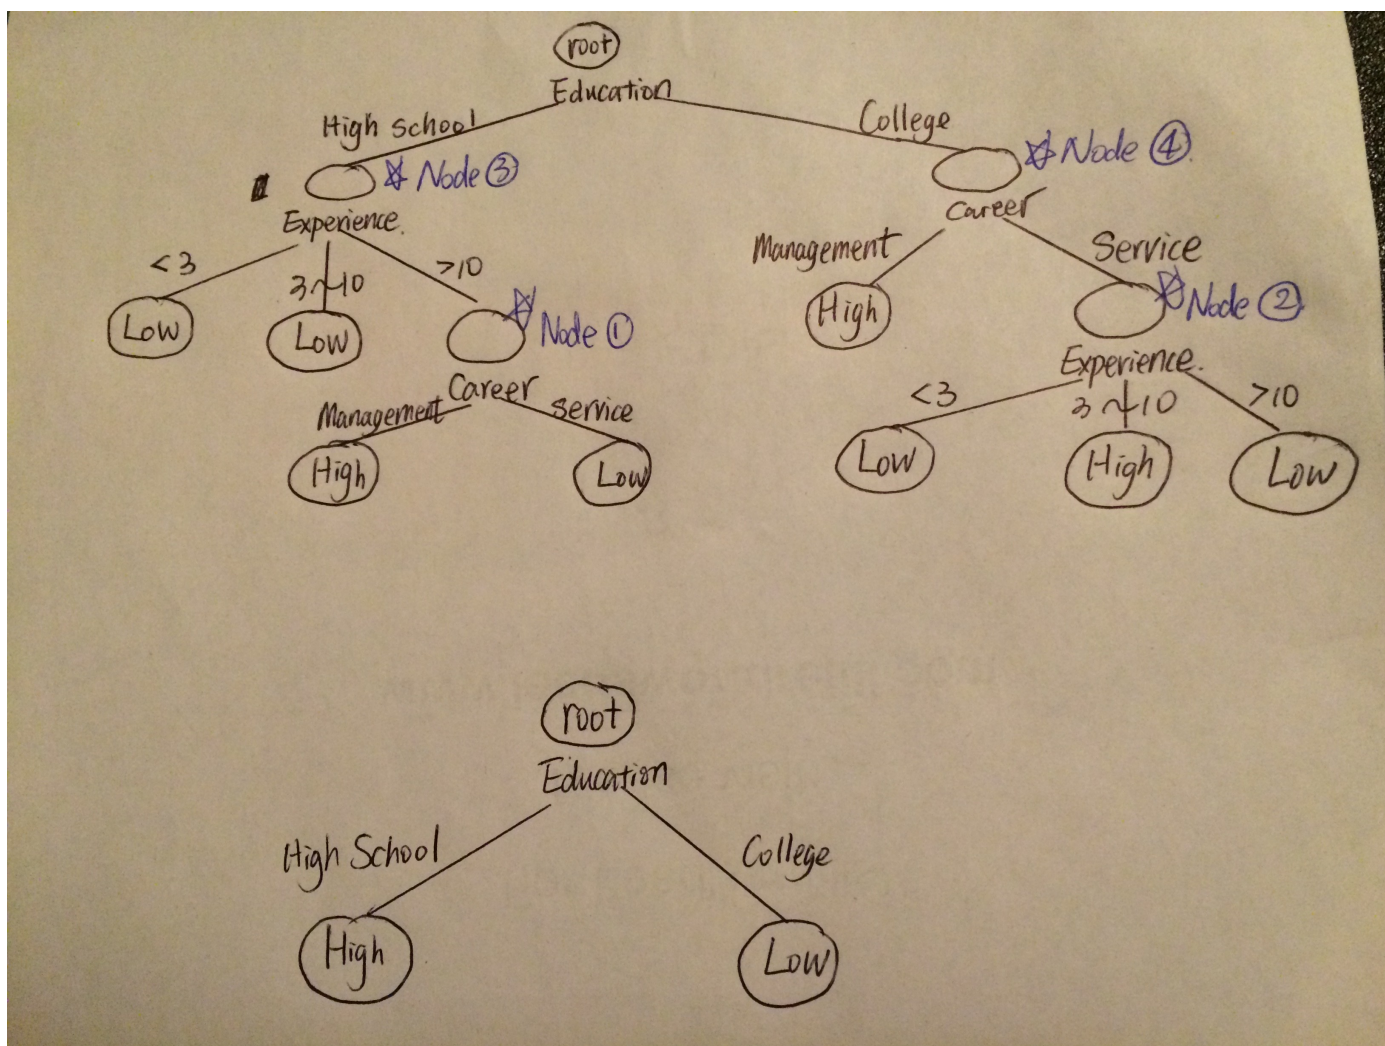 root
Education
High school
College
Node ③
Node ④.
Experience.
Career
<3
3~10
>10
Management
Service
Low
Low
Node ①
High
Node ②
Career
Experience.
Management
Service
<3
3~10
>10
High
Low
Low
High
Low
root
Education
High School
College
High
Low